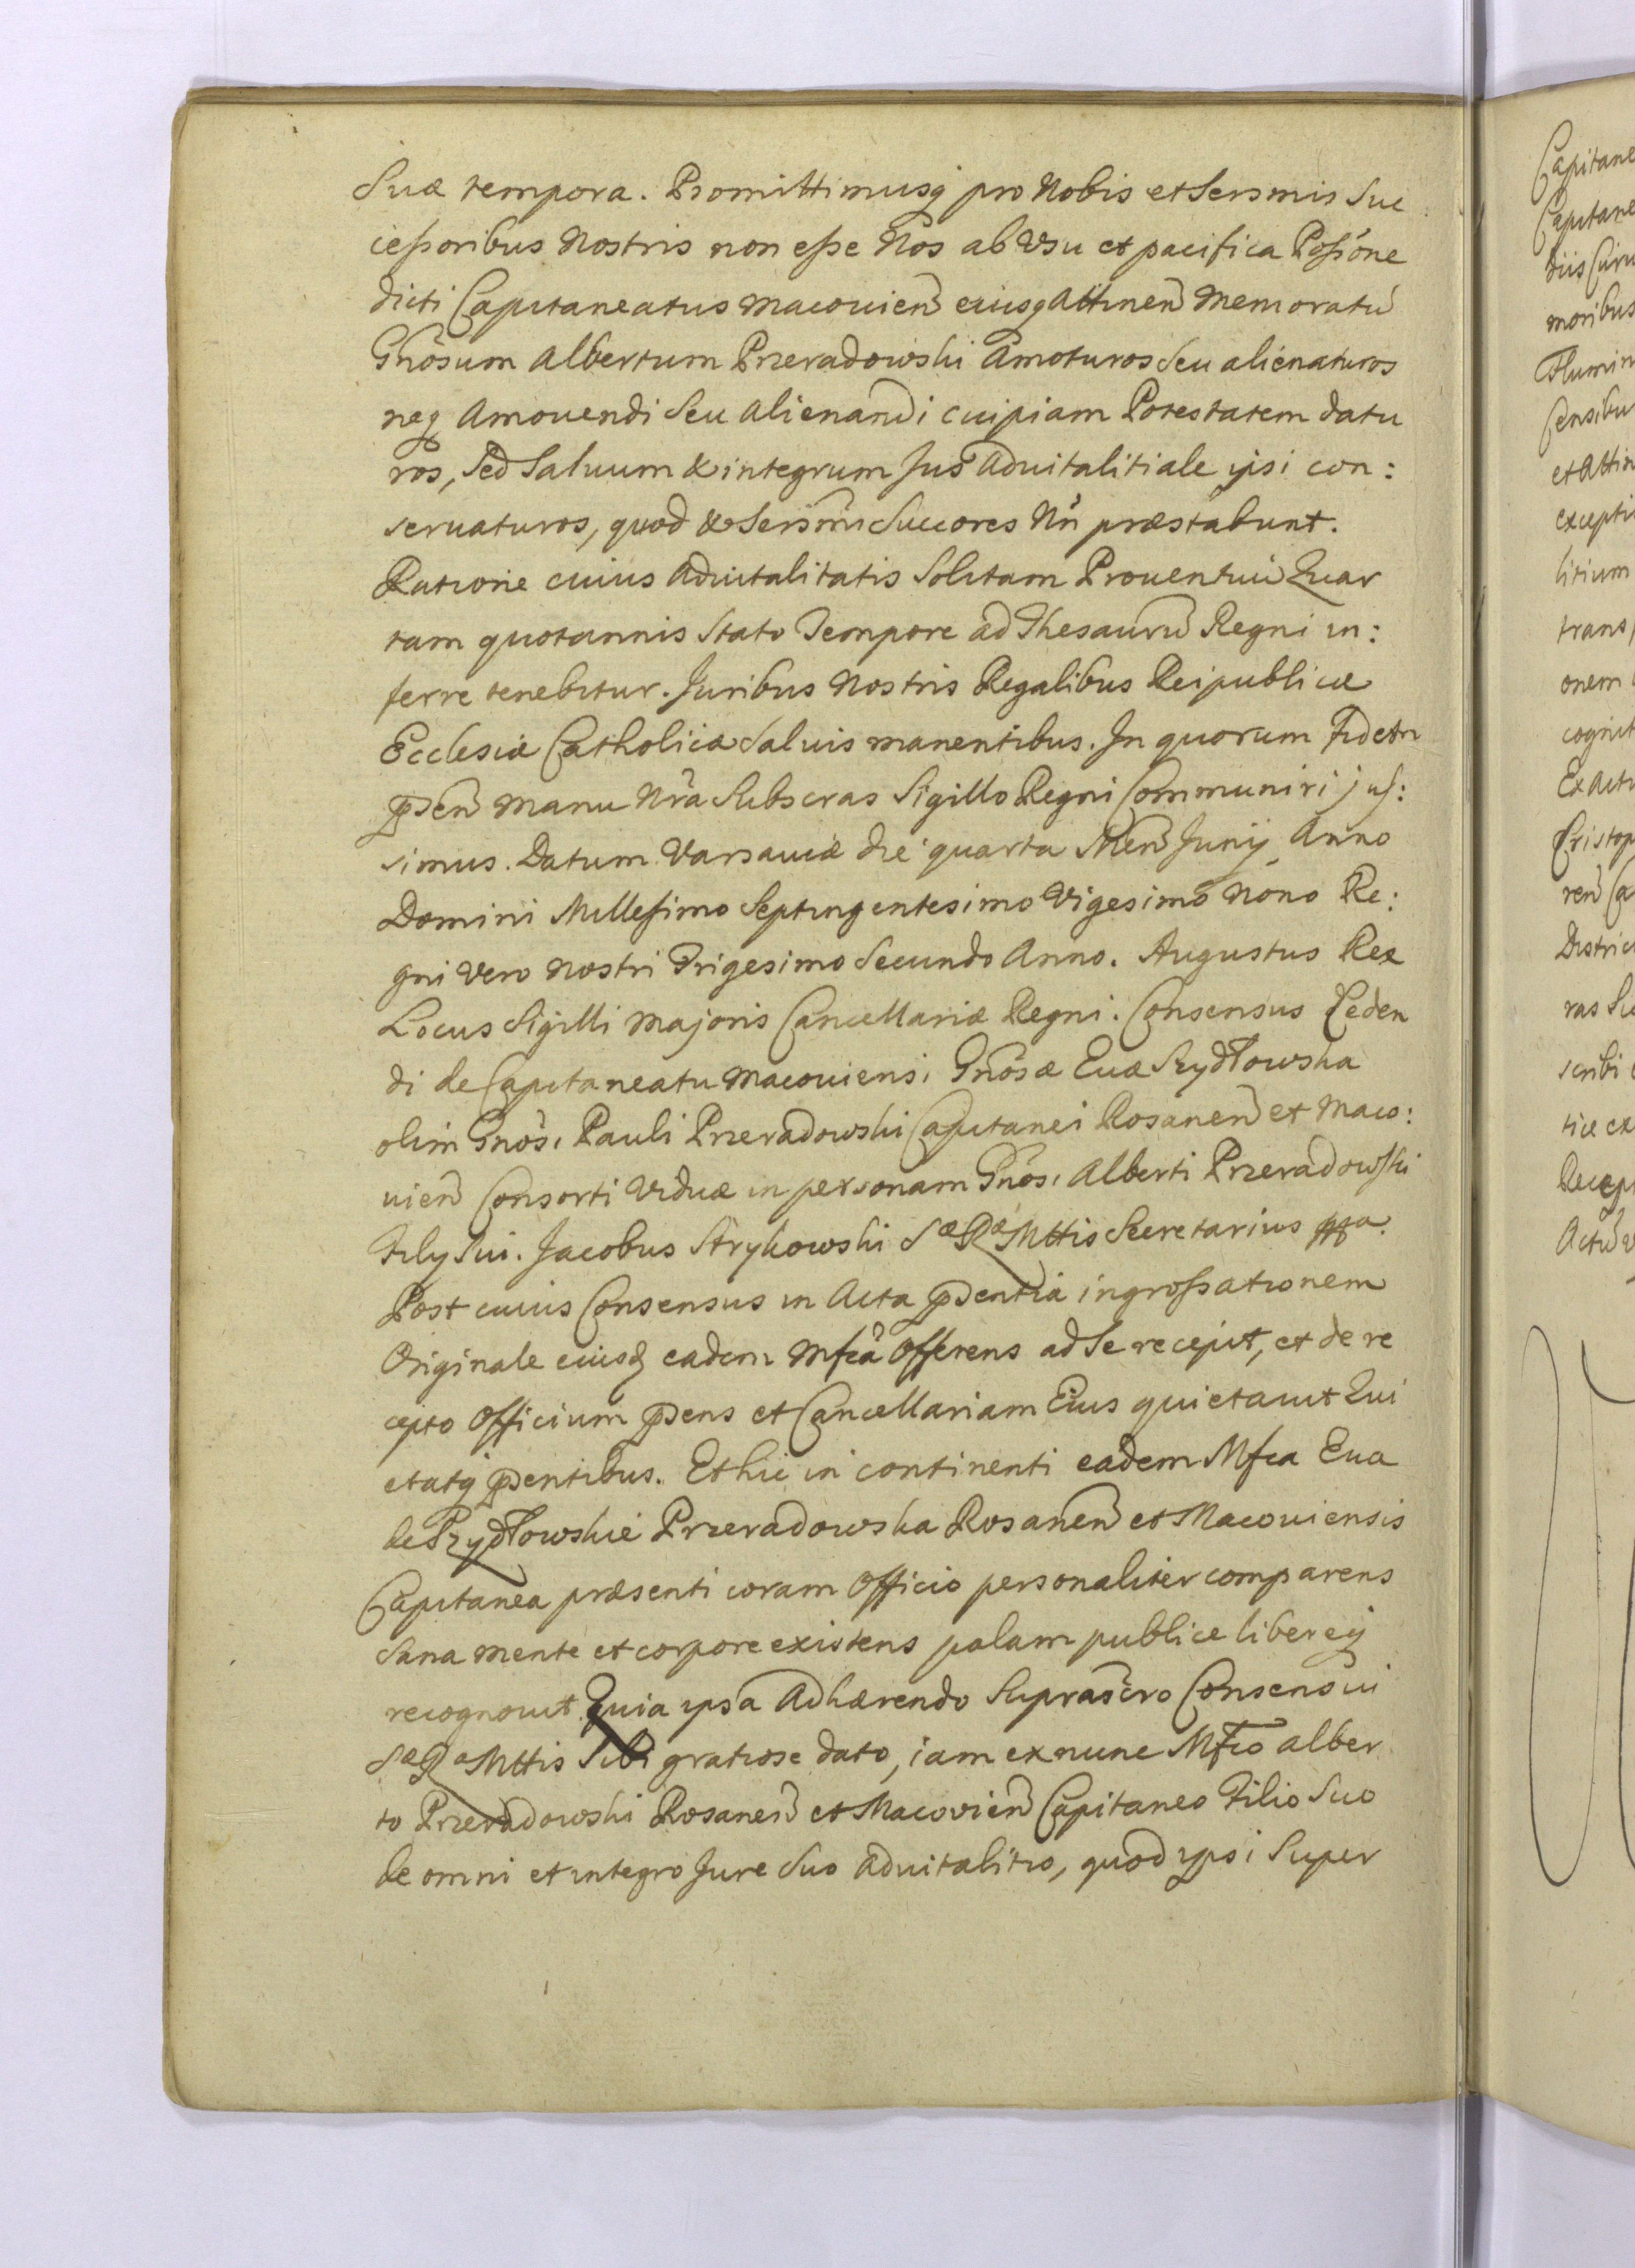 Suæ tempora. Promittimusq̃ pro Nobis et Sersmis Suc
cessoribus Nostris non esse Nos ab Usu et pacifica Possõne
dicti Capitaneatus Macovieñ eiusq Attineñ Memoratũ
Gnõsum Albertum Przeradowski Amoturos Seu alienaturos
neq Amovendi Seu Alienandi cuipiam Potestatem datu
ros, Sed Saluum & integrum Jus Aduitalitiale ipsi con:
seruaturos, quod & Sersm̃i Succores Nr̃i præstabunt.
Ratione cuius Aduitalitatis Solitam Prouentuũ Quar
tam quotannis Stato Tempore ad Thesaurũ Regni in:
ferre tenebitur. Juribus Nostris Regalibus Reipublicæ
Ecclesiæ Catholicæ Saluis manentibus. In quorum Fidem
pñseñ Manu Nr̃a Subscras Sigillo Regni Communiri jus:
simus. Datum Varsaviæ die quarta Meñ Junij Anno
Domini Millesimo Septingentesimo Vigesimo Nono Re:
gni Vero Nostri Trigesimo Secundo Anno. Augustus Rex
Locus Sigilli Majoris Cancellariæ Regni. Consensus Ceden
di de Capitaneatu Macoviensi Gnõsæ Evæ Szydłowska
olim Gnõsi Pauli Przeradowski Capitanei Rosaneñ et Maco:
vieñ Consorti Viduæ in personam Gnõsi Alberti Przeradowski
Filij Sui. Jacobus Strykowski Sæ Ræ Mttis Secretarius mpa.
Post cuius Consensus in Acta pñsentia ingrossationem
Originale eiusd̃ eadem Mfca Offerens ad Se recepit, et de re
cepto Officium pñsens et Cancellariam Eius quietavit Qui
etatq̃ pñsentibus. Et hic in continenti eadem Mfca Eva
de Szydłowskie Przeradowska Rosaneñ et Macoviensis
Capitanea præsenti coram Officio personaliter comparens
Sana mente et corpore existens palam publice libereq̃
recognovit Quia ipsa Adhærendo Suprascro Consensui
Sæ Ræ Mttis Sibi gratiose dato, iam ex nunc Mfco Alber
to Przeradowski Rosaneñ et Macovieñ Capitaneo Filio Suo
de omni et integro Jure Suo Aduitalitio, quod ipsi Super
Capitane
Capitane
moribus
Flumin
Censibu
et Attin
excepti
litium
trans
onem
cognit
Ex Actu
ren Ca
Distric
ras Su
scribi
tice ex
Recep